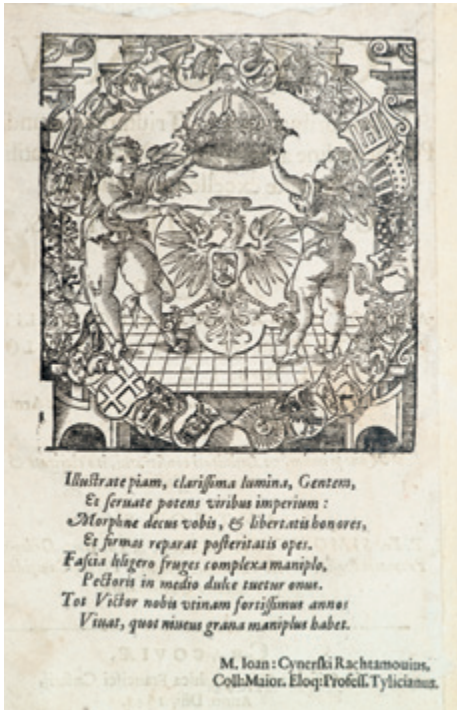 Illustrate piam, clarissima lumina, Gentem,
Et seruate potens viribus imperium:
Morphne decus vobis, & libertatis honores,
Et firmas reparat posteritatis opes.
Fascia hligero fruges complexa maniplo,
Pectoris in medio dulce tuetur onus.
Tot Victor nobis vtinam fortissimus annos
Viuat, quot niueus grana maniplus habet.
M. Ioan: Cynerski Rachtamouius,
Coll: Maior. Eloq: Profess. Tylicianus.